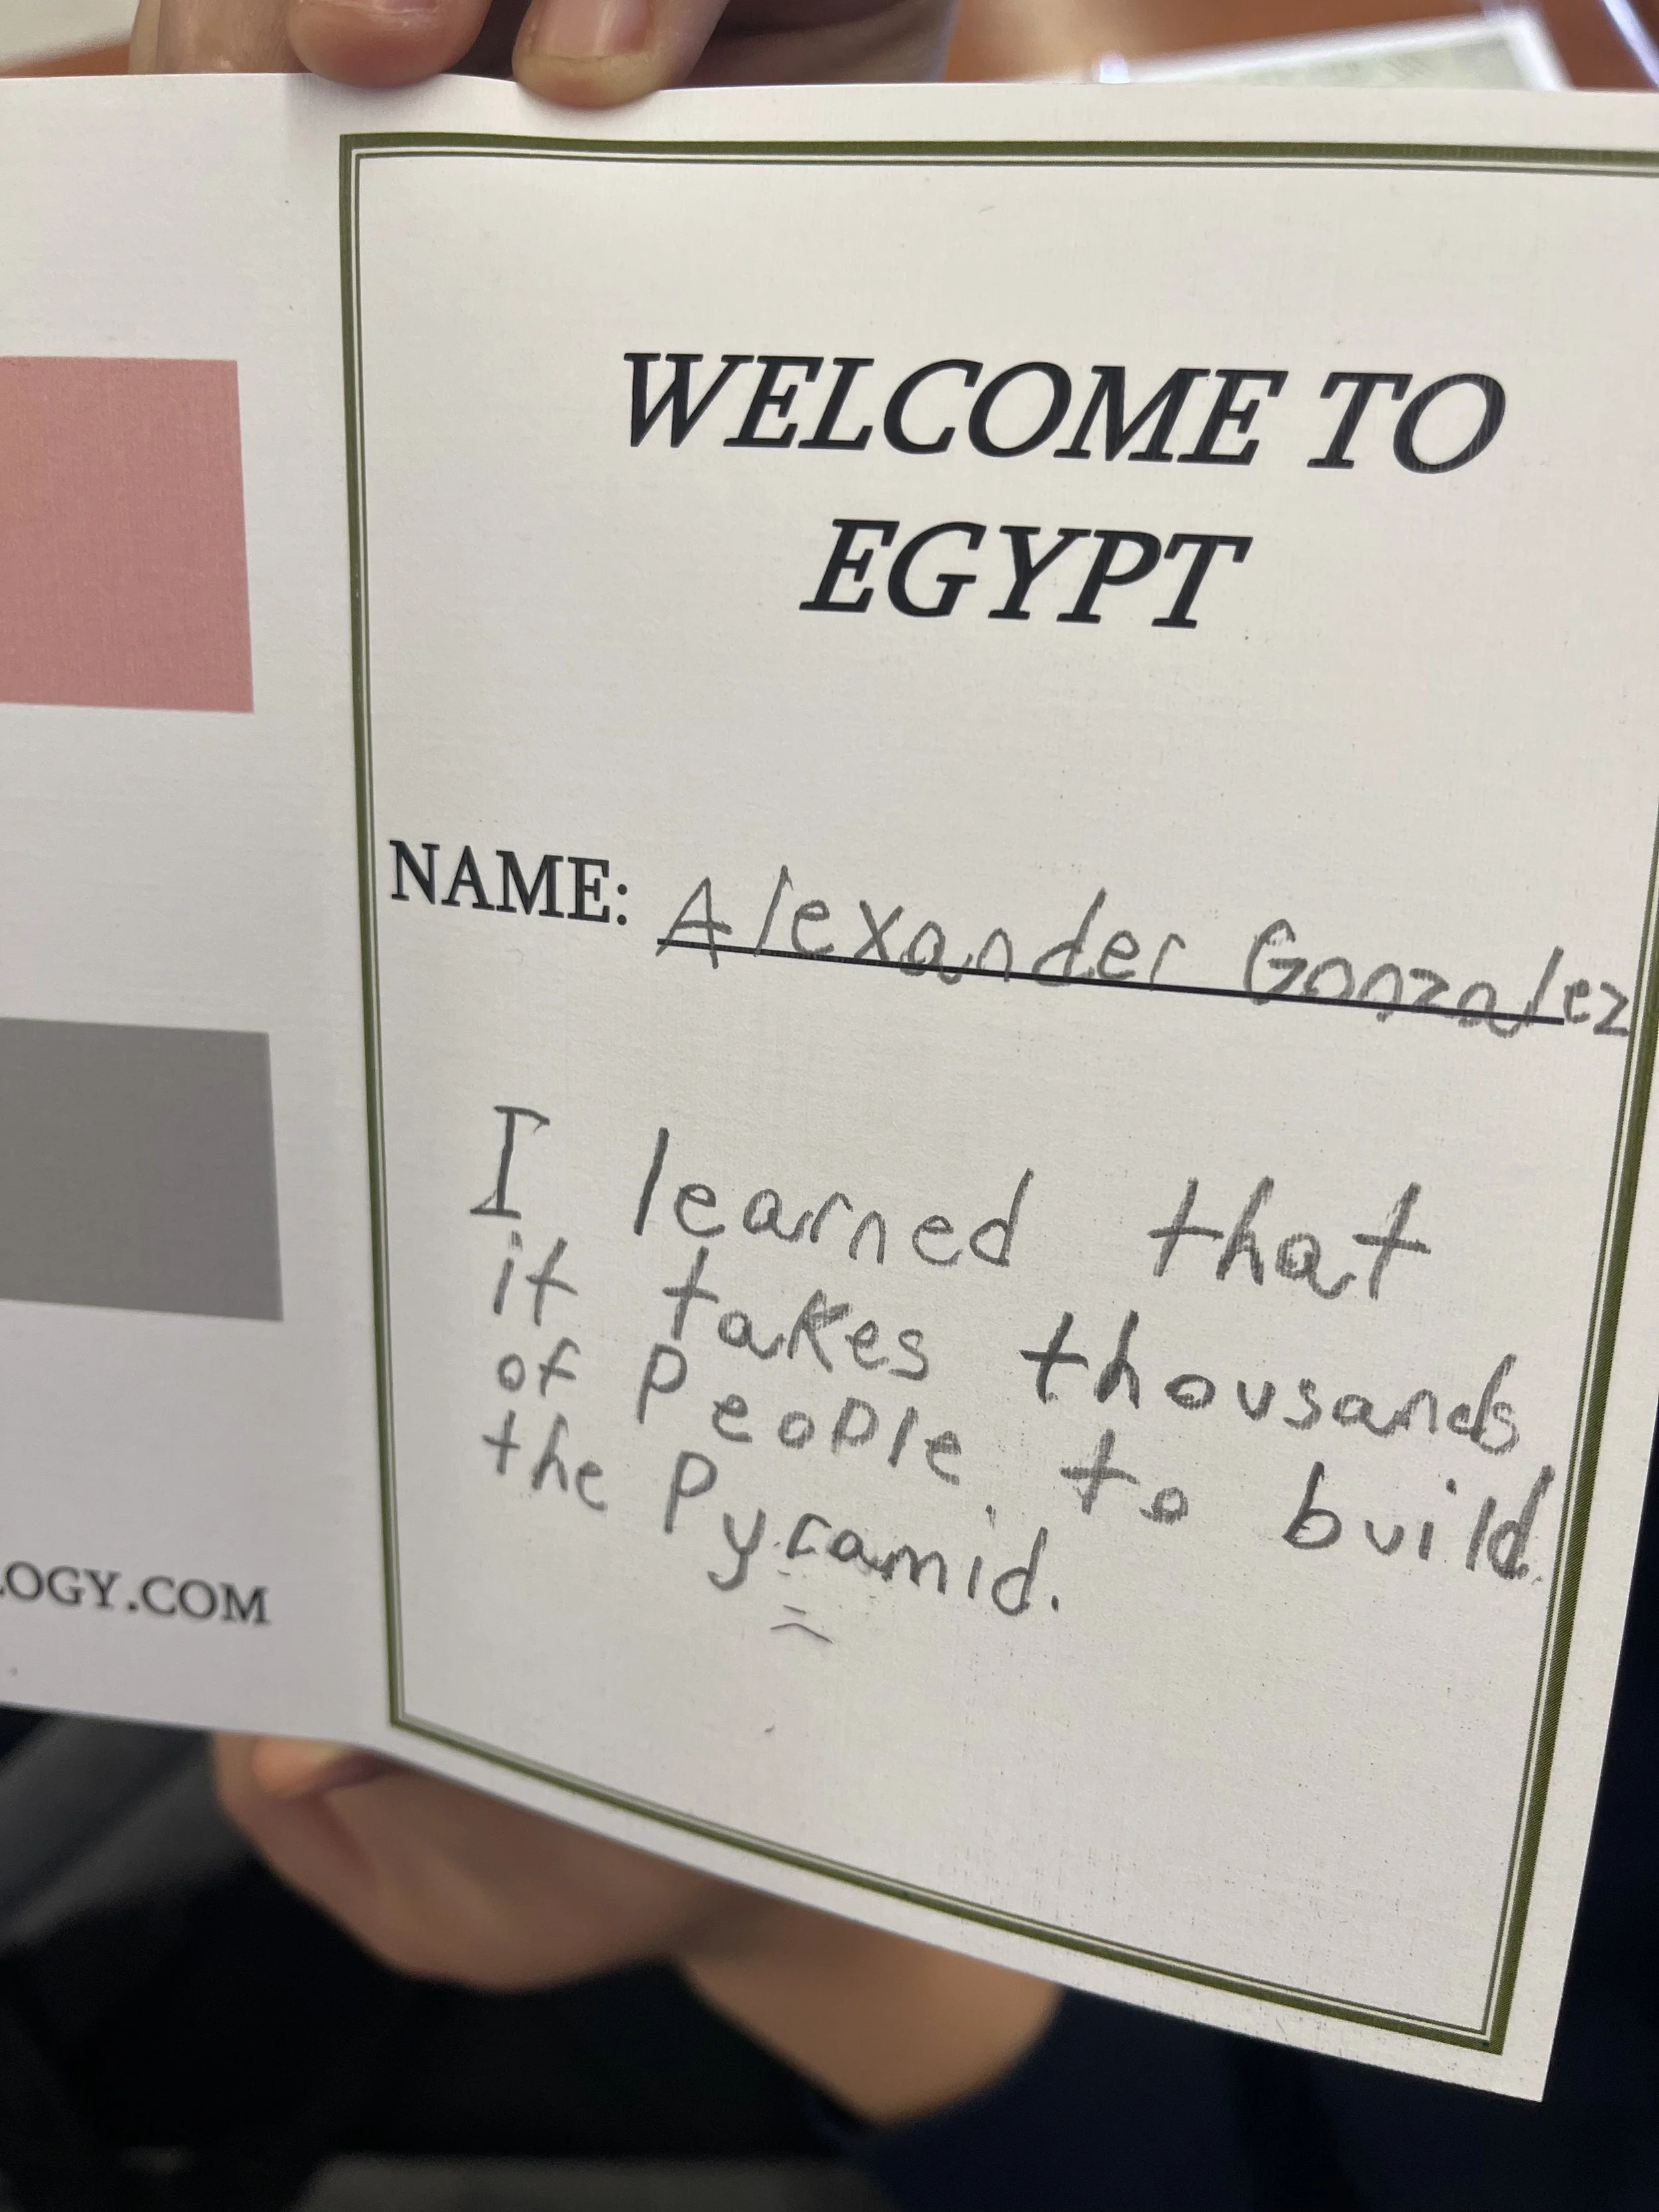 WELCOME TO
EGYPT
NAME: Alexander Gonzalez
I learned that
it takes thousands
of People to build
the Pyramid.
LOGY.COM